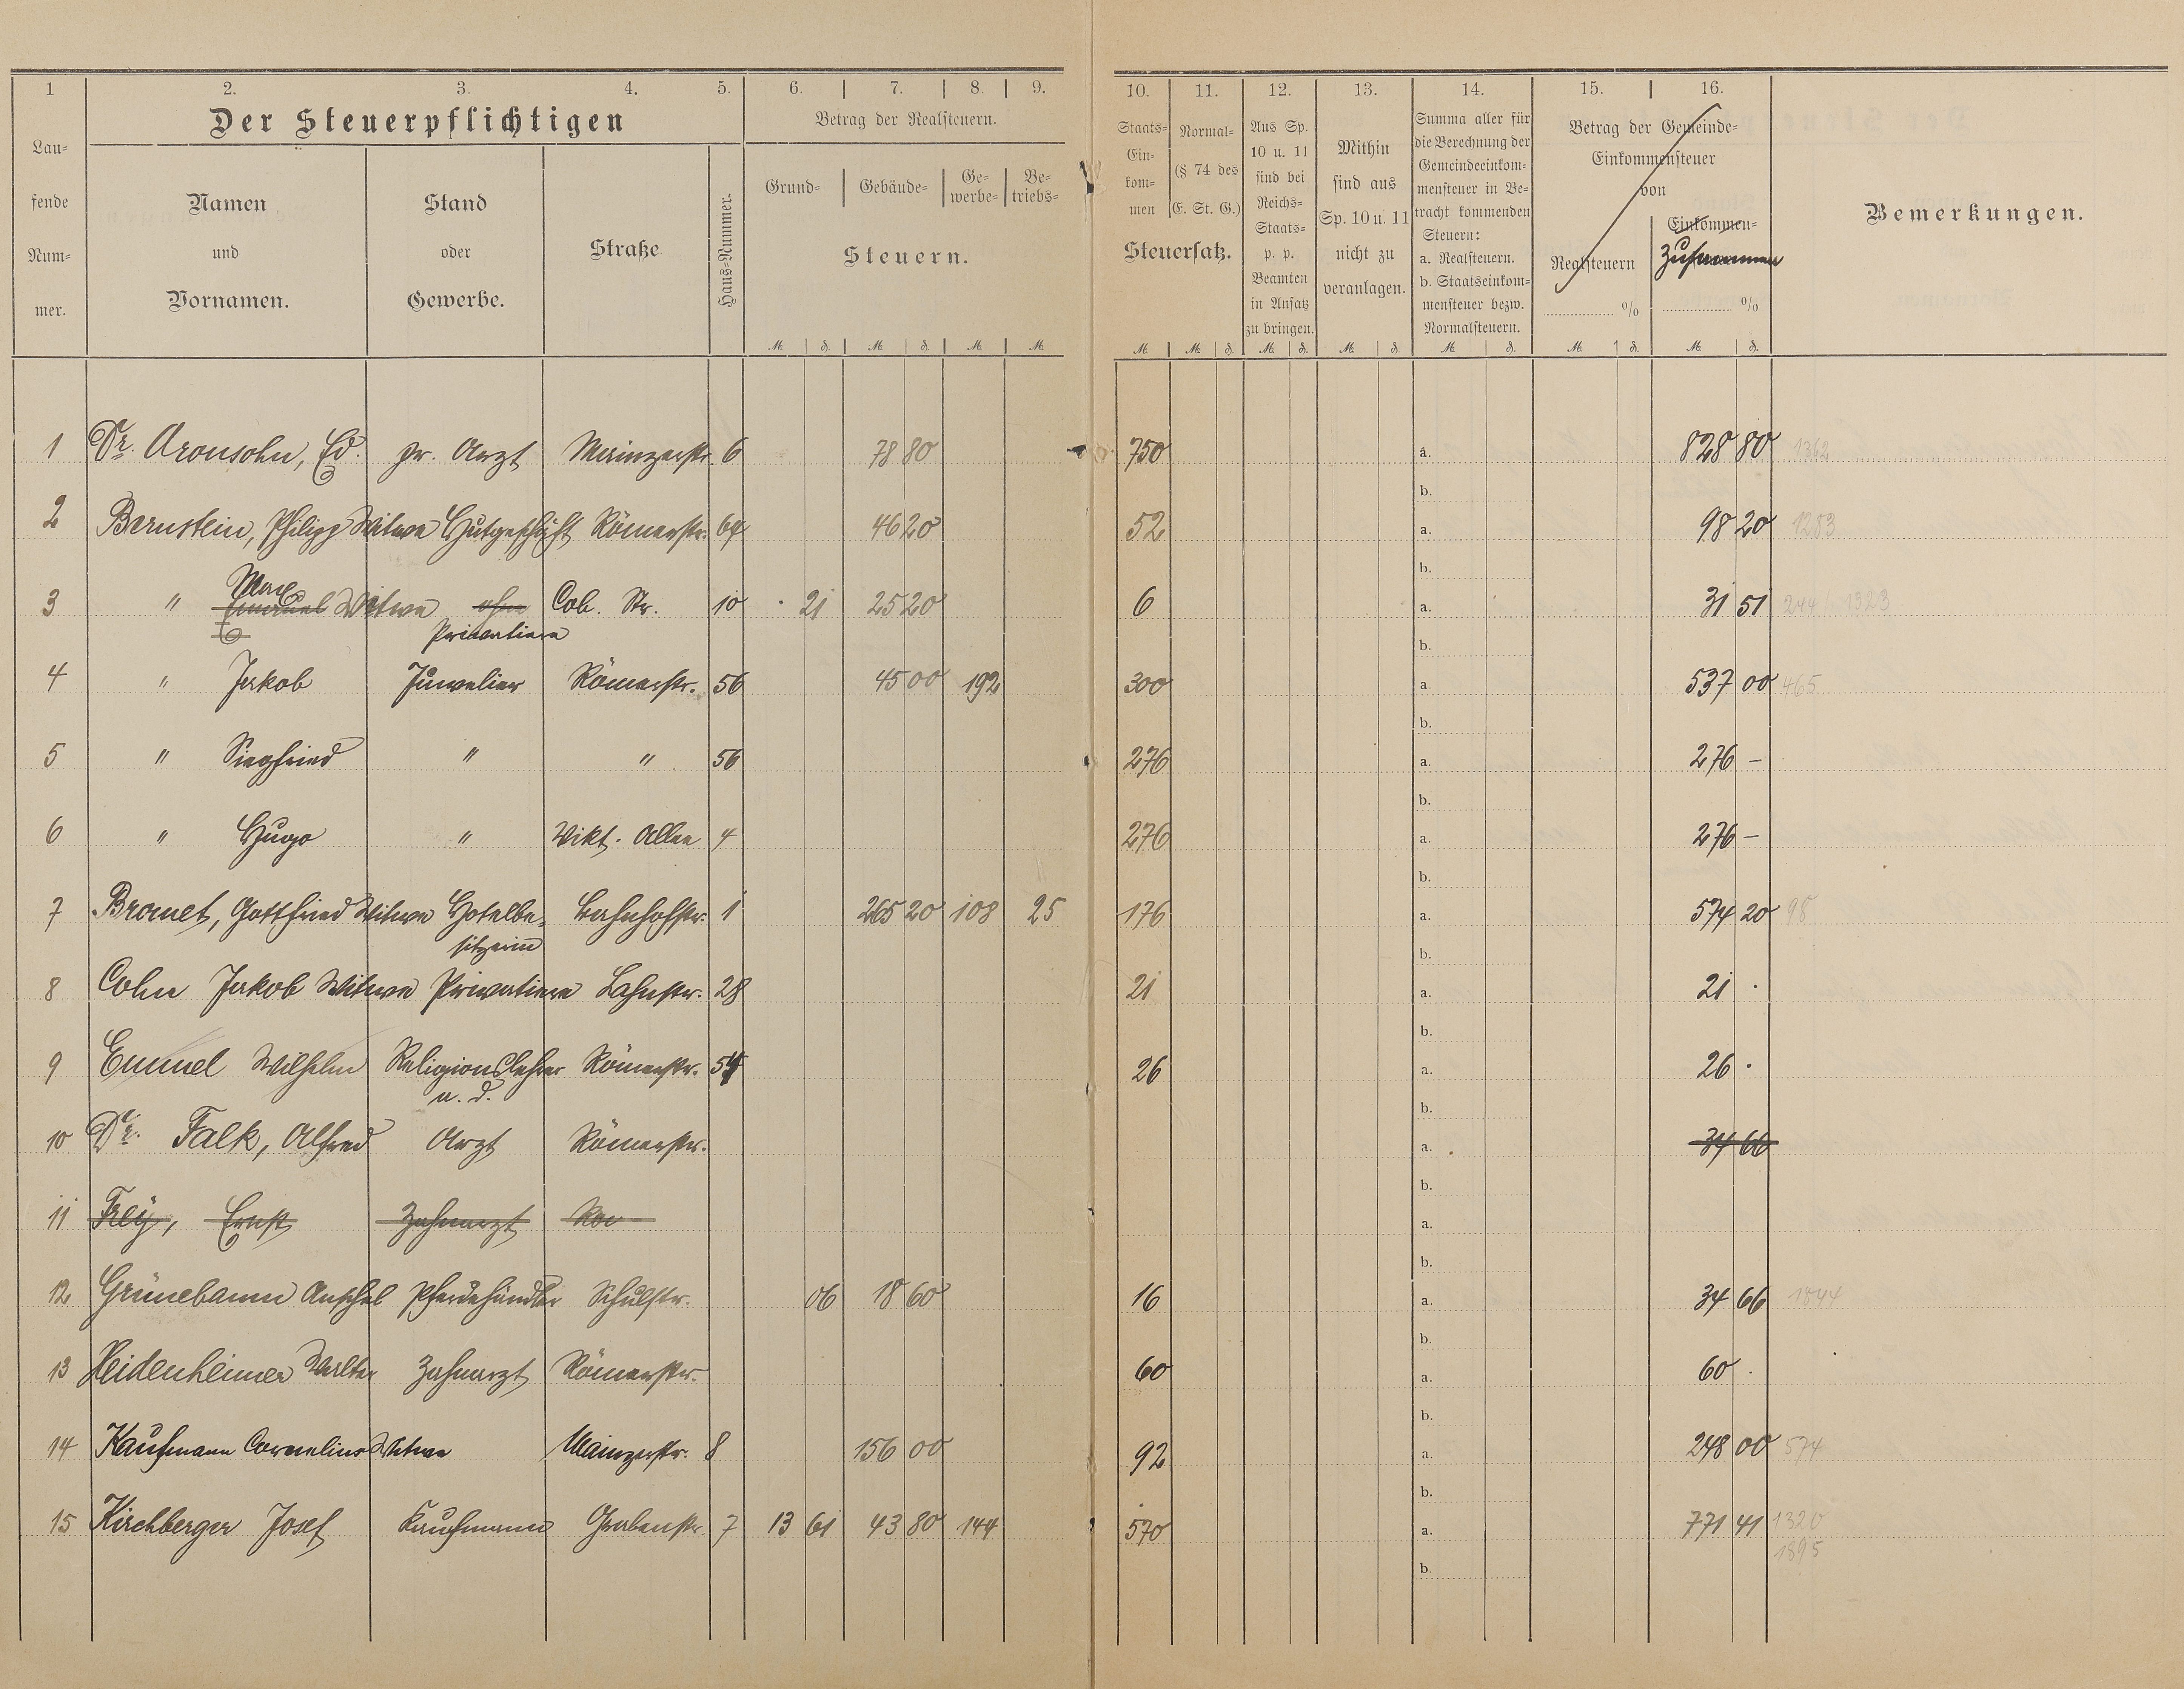 1 2. 3. 4. 5. 6. 7. 8. 9. 10. 11. 12. 13. 14. 15. 16.
Der Steuerpflichtigen
Lau-
fende
Num-
mer.
Namen
und
Vornamen.
Stand
oder
Gewerbe.
Straße
Haus-Nummer.
Betrag der Realsteuern.
Grund- Gebäude- Ge-
werbe- Be-
triebs-
Steuern.
M. ₰. M. ₰. M. M.
Staats-
Ein-
kom-
men
Normal-
(§ 74 des
E. St. G.)
Steuersatz.
Aus Sp.
10 u. 11
sind bei
Reichs-
Staats-
p. p.
Beamten
in Ansatz
zu bringen.
Mithin
sind aus
Sp. 10 u. 11
nicht zu
veranlagen.
Summa aller für
die Berechnung der
Gemeindeeinkom-
mensteuer in Be-
tracht kommenden
Steuern:
a. Realsteuern.
b. Staatseinkom-
mensteuer bezw.
Normalsteuern.
Betrag der Gemeinde-
Einkommensteuer
von
Realsteuern
% 
Einkommen-
Zusammen
%
Bemerkungen.
M. M. ₰. M. ₰. M. ₰. M. ₰. M. ₰. M. ₰.
1 Dr. Aronsohn, Ed. pr. Arzt Mainzerstr. 6 78 80 750 a. 828 80 1362
b.
2 Bernstein, Philipp Witwe Hutgeschäft Römerstr. 64 46 20 52 a. 98 20 1283
b.
3 " Emanuel Max Witwe ohne Privatiere Cob. Str. 10 · 21 25 20 6 a. 31 51 244 1323
b.
4 " Jakob Juwelier Römerstr. 56 45 00 192 300 a. 537 00 465
b.
5 " Siegfried " " 56 276 a. 276 –
b.
6 " Hugo " Vikt. Allee 4 276 a. 276 –
b.
7 Bromet, Gottfried Witwe Hotelbe- Bahnhofstr. 1 265 20 108 25 176 a. 574 20 98
sitzerin
b.
8 Cohn Jakob Witwe Privatiere Lahnstr. 28 21 a. 21 ·
b.
9 Emmel Wilhelm Religionslehrer Römerstr. 54 26 a. 26 ·
a. d.
b.
10 Dr. Falk, Alfred Arzt Römerstr. a. 34 66
b.
11 Frey, Ernst Zahnarzt Röm a.
b.
12 Grünebaum Anschel Pferdehändler Schulstr. 06 18 60 16 a. 34 66 1844
b.
13 Heidenheimer Walter Zahnarzt Römerstr. 60 a. 60 ·
b.
14 Kaufmann Cornelius Witwe Mainzerstr. 8 156 00 92 a. 248 00 574
b.
15 Kirchberger Josef Kaufmann Grabenstr. 7 13 61 43 80 144 570 a. 771 41 1320
1895
b.